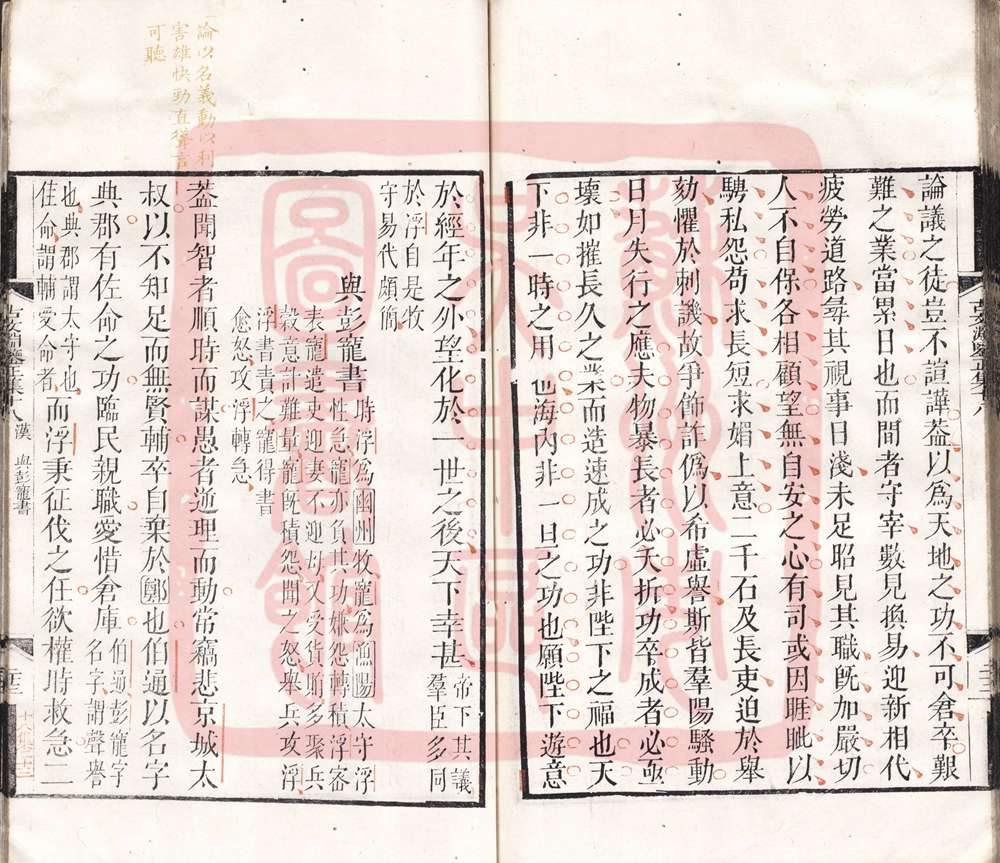 論議之徒豈不諠譁葢以爲天地之功不可倉卒艱
難之業當累日也而間者守宰數見換易迎新相代
疲勞道路尋其視事日淺未足昭見其職旣加嚴切
人不自保各相顧望無自安之心有司或因睚眦以
騁私怨苟求長短求媚上意二千石及長吏迫於舉
劾懼於刺譏故爭飾詐僞以希虛譽斯皆羣陽騷動
日月失行之應夫物暴長者必夭折功卒成者必亟
壞如摧長久之業而造速成之功非陛下之福也天
下非一時之用也海內非一旦之功也願陛下遊意
於經年之外望化於一世之後天下幸甚帝下其議羣臣多同
於浮自是牧守易代頗簡
與彭寵書時浮爲幽州牧寵爲漁陽太守浮性急寵亦負其功嫌怨轉積浮密
表寵遣吏迎妻不迎母又受貨賄多聚兵穀意計難量寵旣積怨聞之怒舉兵攻浮
浮書責之寵得書愈怒攻浮轉急
葢聞智者順時而謀愚者逆理而動常竊悲京城太
叔以不知足而無賢輔卒自棄於鄭也伯通以名字
典郡有佐命之功臨民親職愛惜倉庫伯通彭寵字名字謂聲譽
也典郡謂太守也佐命謂輔受命者而浮秉征伐之任欲權時救急二
論以名義動以利
害雄快勁直
可聽
古文淵鑒正集十八
古文淵鑒正集十八 漢 與彭寵書